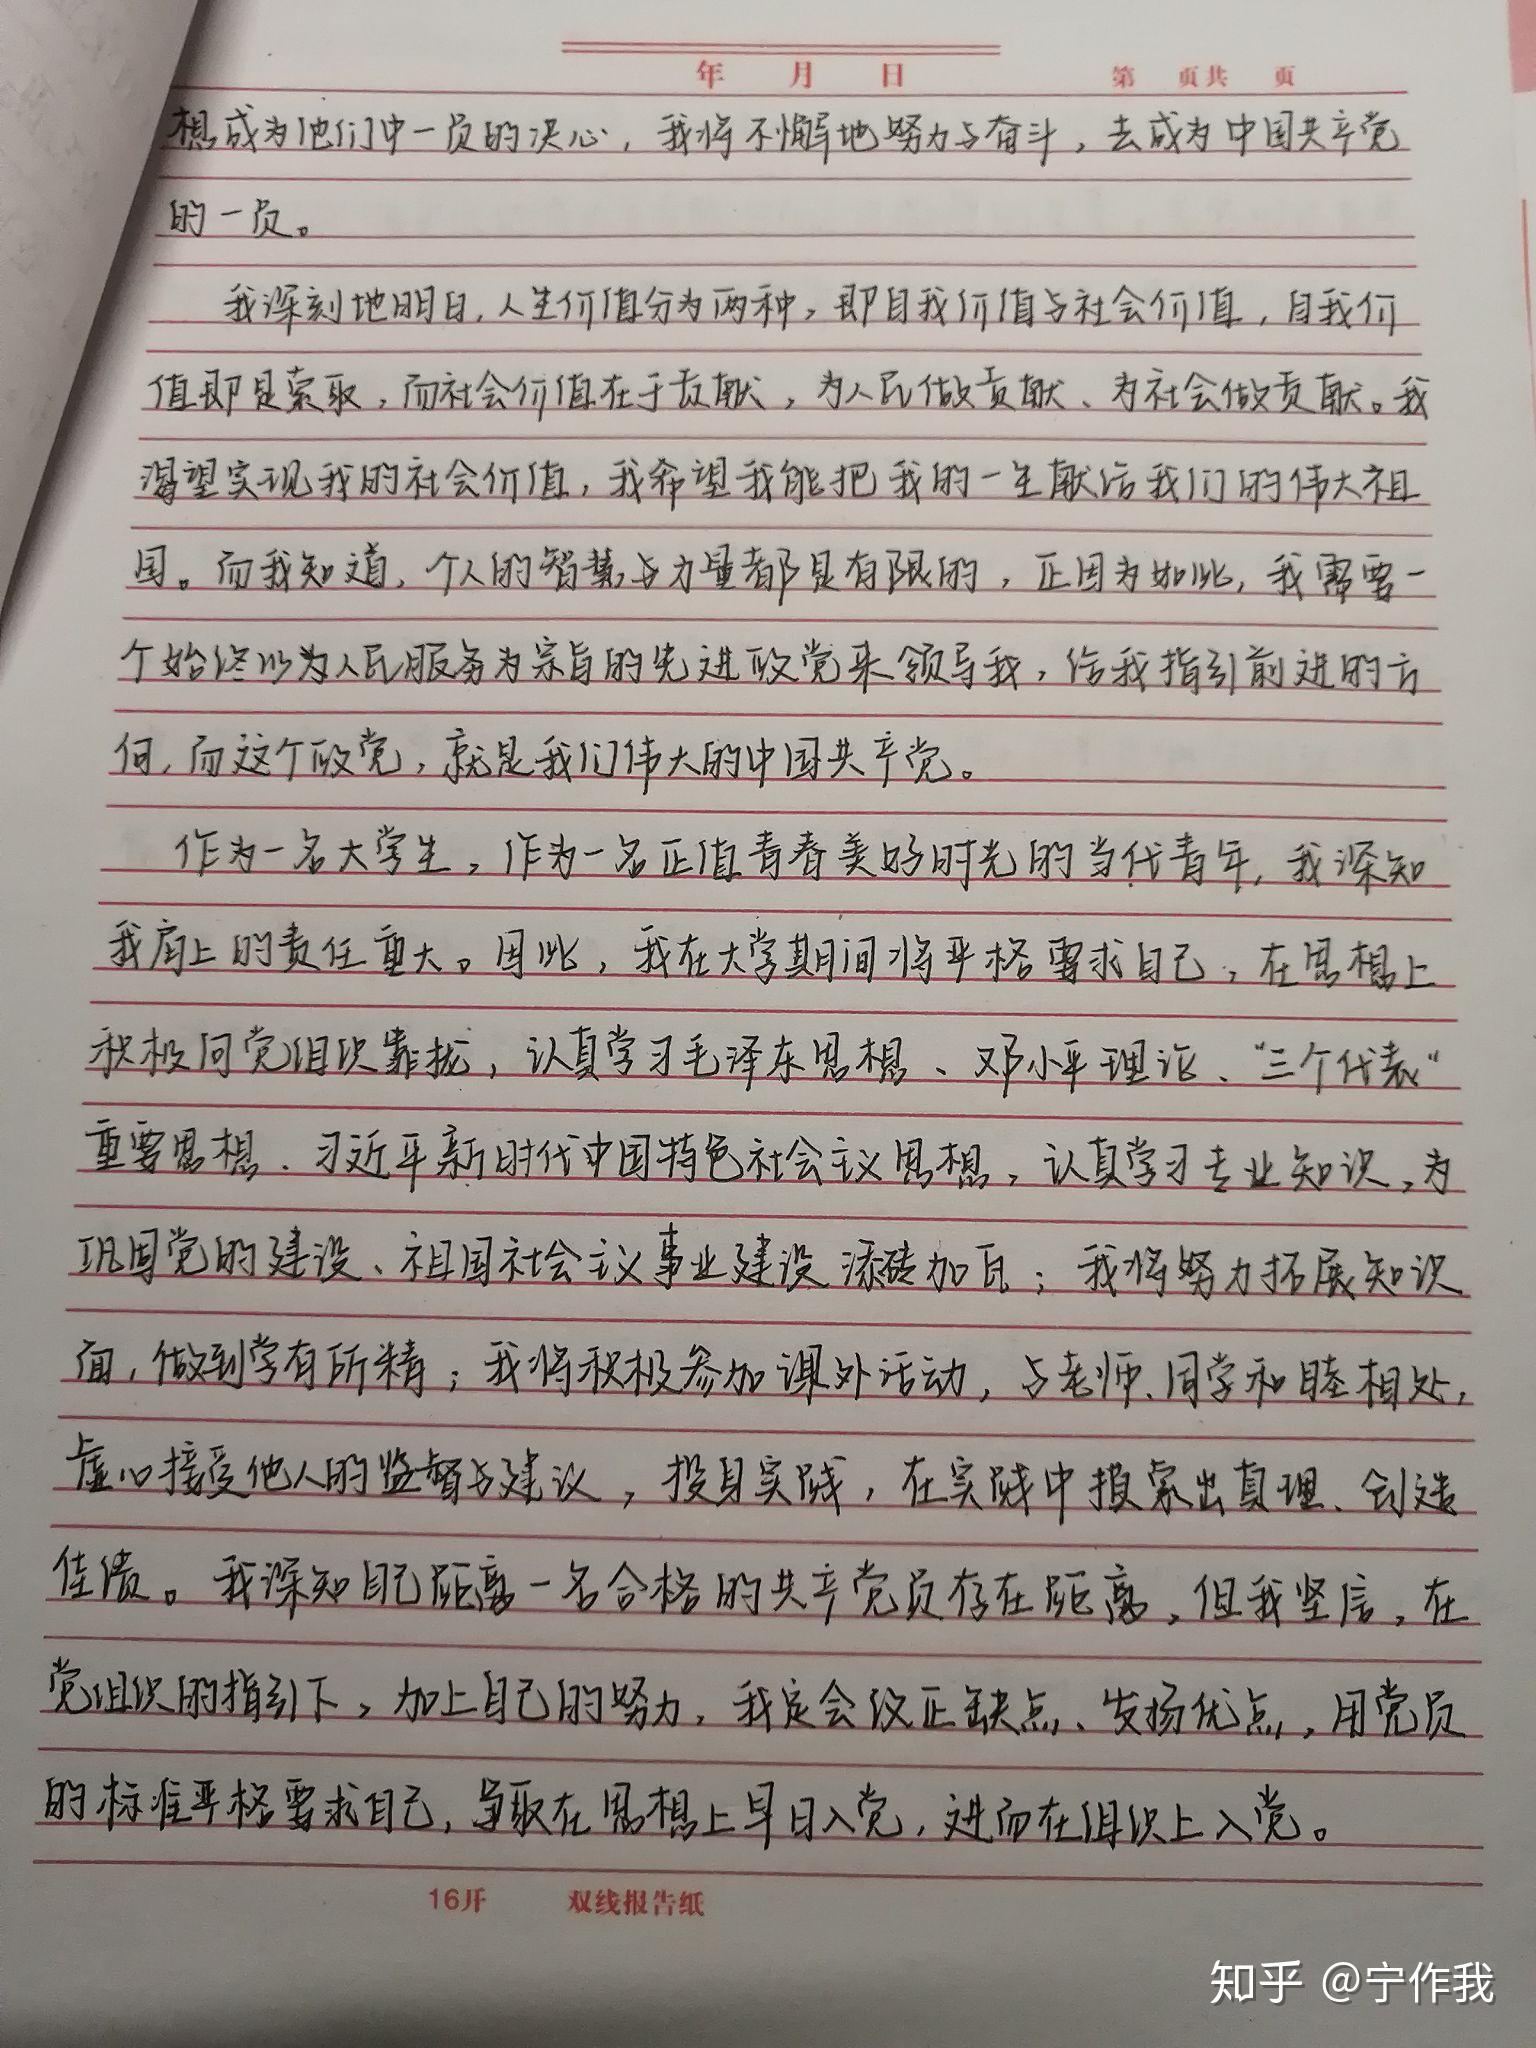 年 月 日 第 页共 页
想成为他们中一员的决心，我将不懈地努力与奋斗，去成为中国共产党
的一员。
我深刻地明白，人生价值分为两种，即自我价值与社会价值，自我价
值即是索取，而社会价值在于贡献，为人民做贡献、为社会做贡献。我
渴望实现我的社会价值，我希望我能把我的一生献给我们的伟大祖
国。而我知道，个人的智慧与力量都是有限的，正因为如此，我需要一
个始终以为人民服务为宗旨的先进政党来领导我，给我指引前进的方
向，而这个政党，就是我们伟大的中国共产党。
作为一名大学生，作为一名正值青春美好时光的当代青年，我深知
我肩上的责任重大。因此，我在大学期间将严格要求自己，在思想上
积极向党组织靠拢，认真学习毛泽东思想、邓小平理论、“三个代表”
重要思想、习近平新时代中国特色社会主义思想，认真学习专业知识，为
巩固党的建设、祖国社会主义事业建设添砖加瓦；我将努力拓展知识
面，做到学有所精；我将积极参加课外活动，与老师、同学和睦相处，
虚心接受他人的监督与建议，投身实践，在实践中摸索出真理、创造
佳绩。我深知自己距离一名合格的共产党员存在距离，但我坚信，在
党组织的指引下，加上自己的努力，我定会改正缺点、发扬优点，用党员
的标准严格要求自己，争取在思想上早日入党，进而在组织上入党。
16开 双线报告纸
知乎 @宁作我